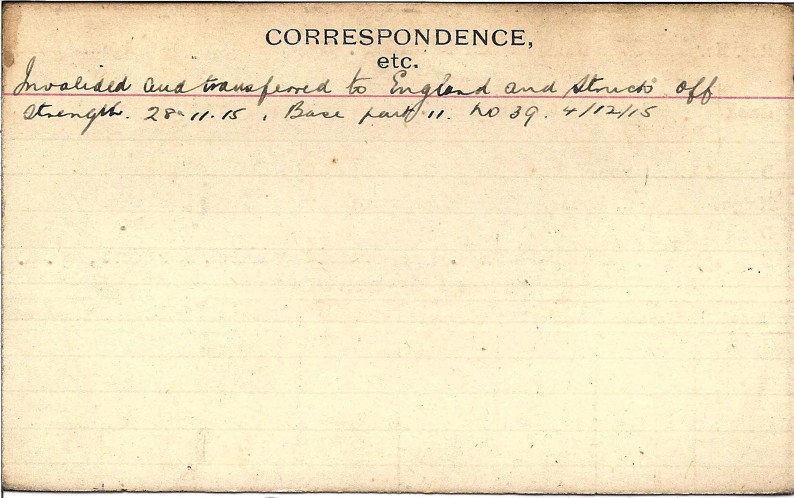 CORRESPONDENCE,
etc.
Invalided and transferred to England and struck off
strength. 28-11-15, Base part 11. No 39. 4/12/15